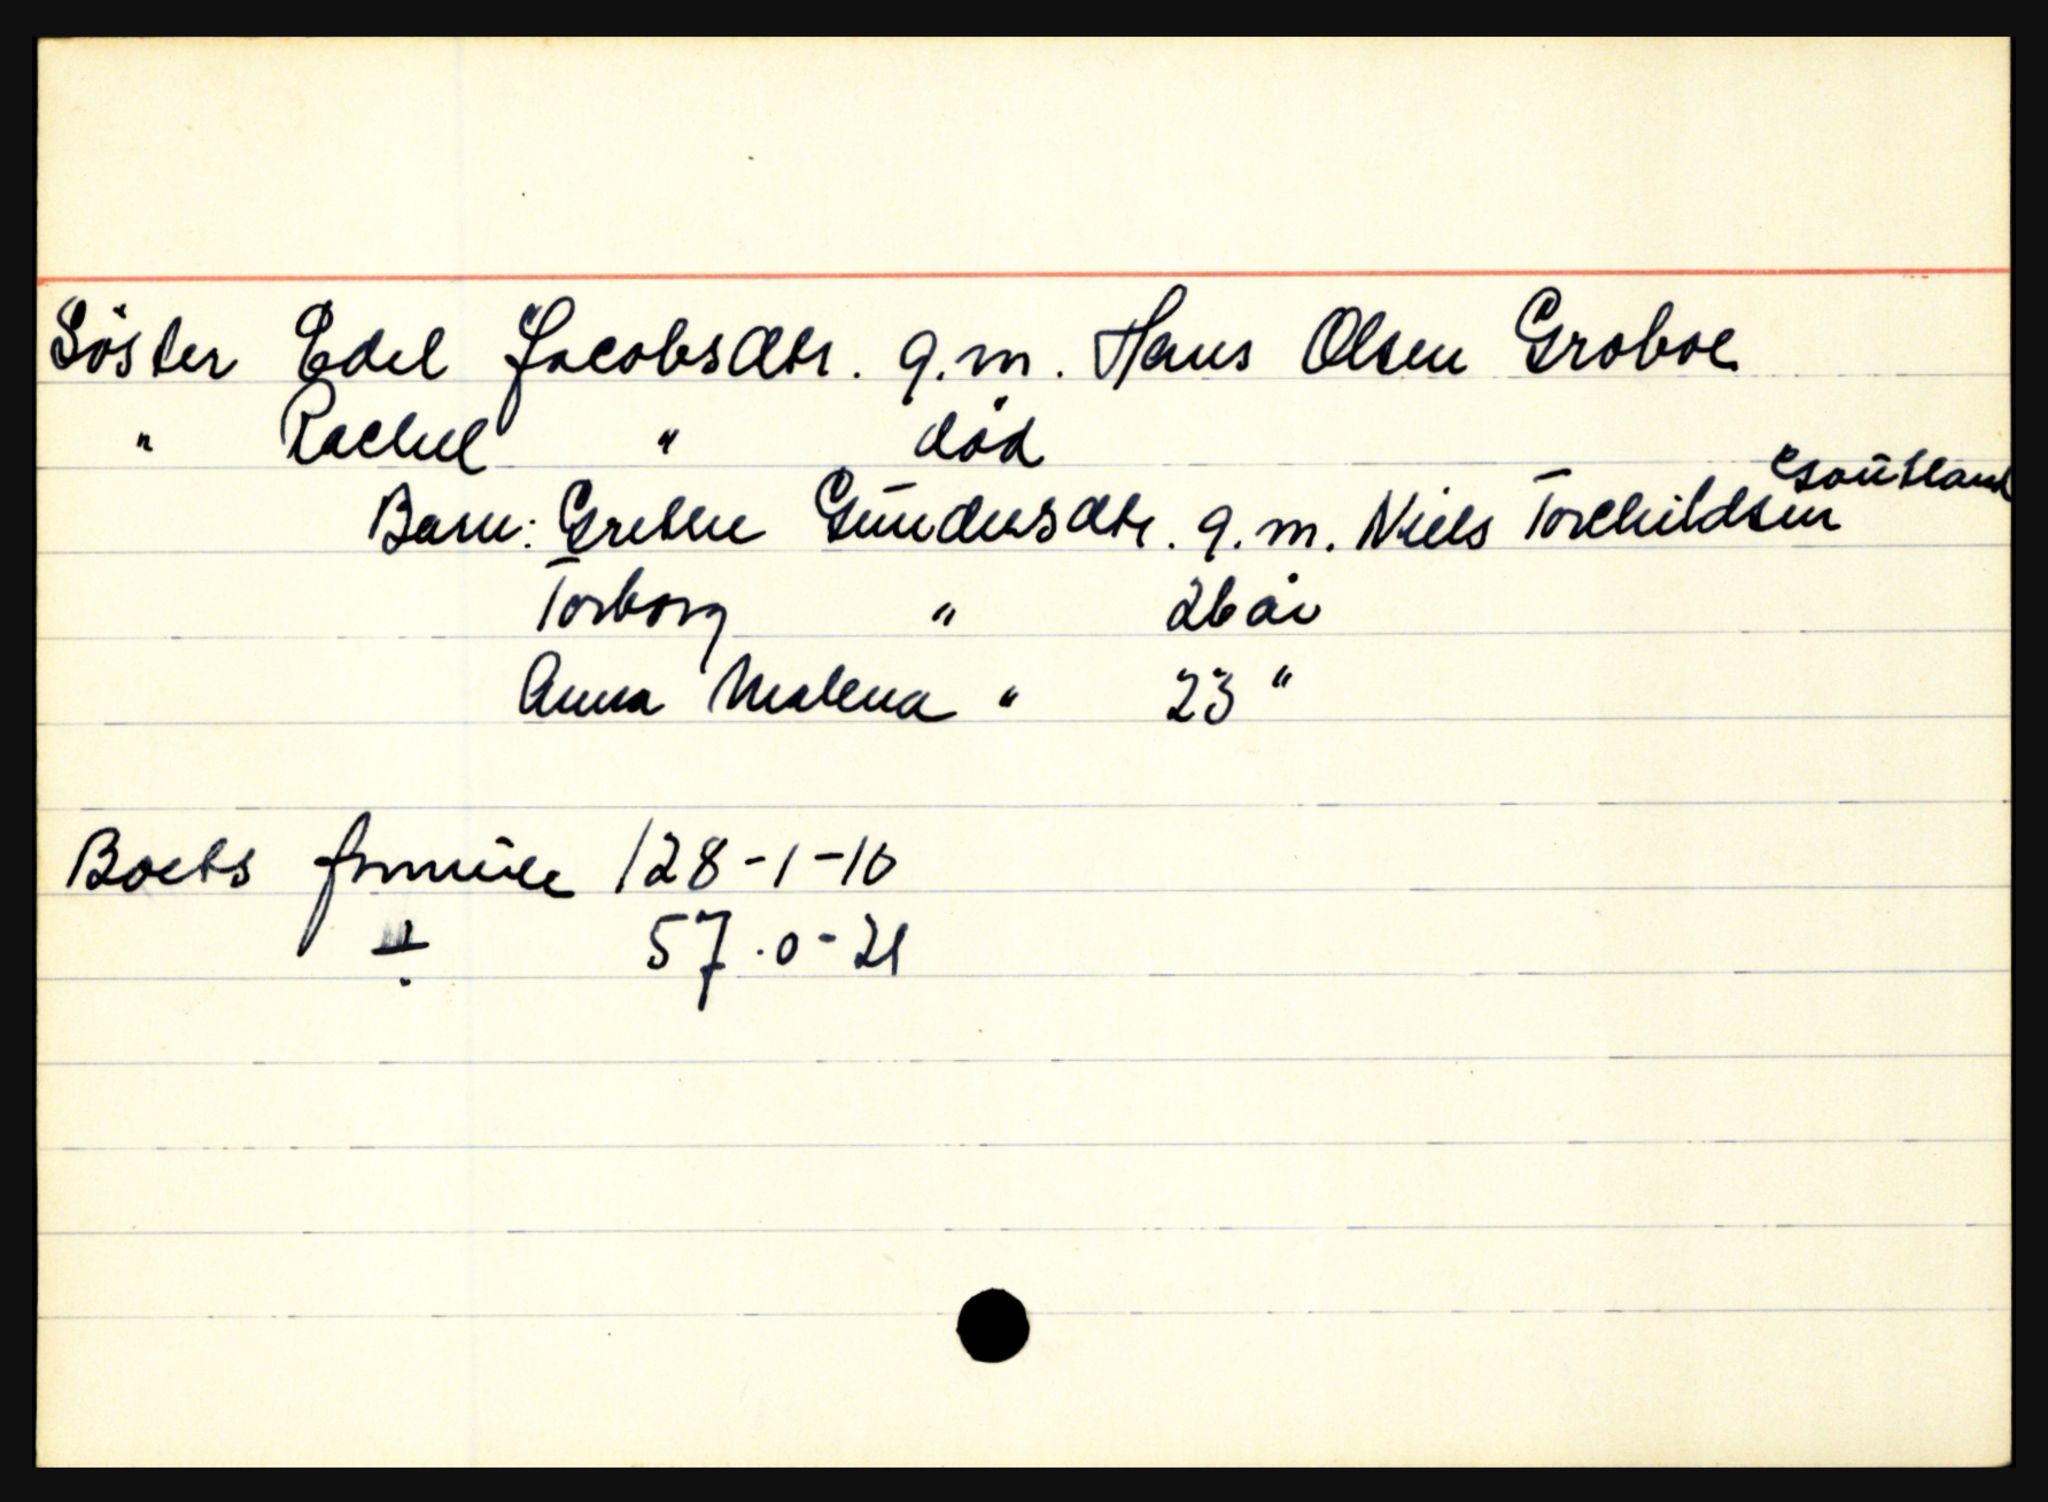 Söster Edel Jacobsdtr. g.m. Hans Olsen Groboe
" Rachel " död
Barn: Grethe Gundersdtr. g.m. Niels Torchildsen
Torborg " 26 år
Anna Malena " 23 "
Boets formüe 128-1-10
÷ 57.0-21